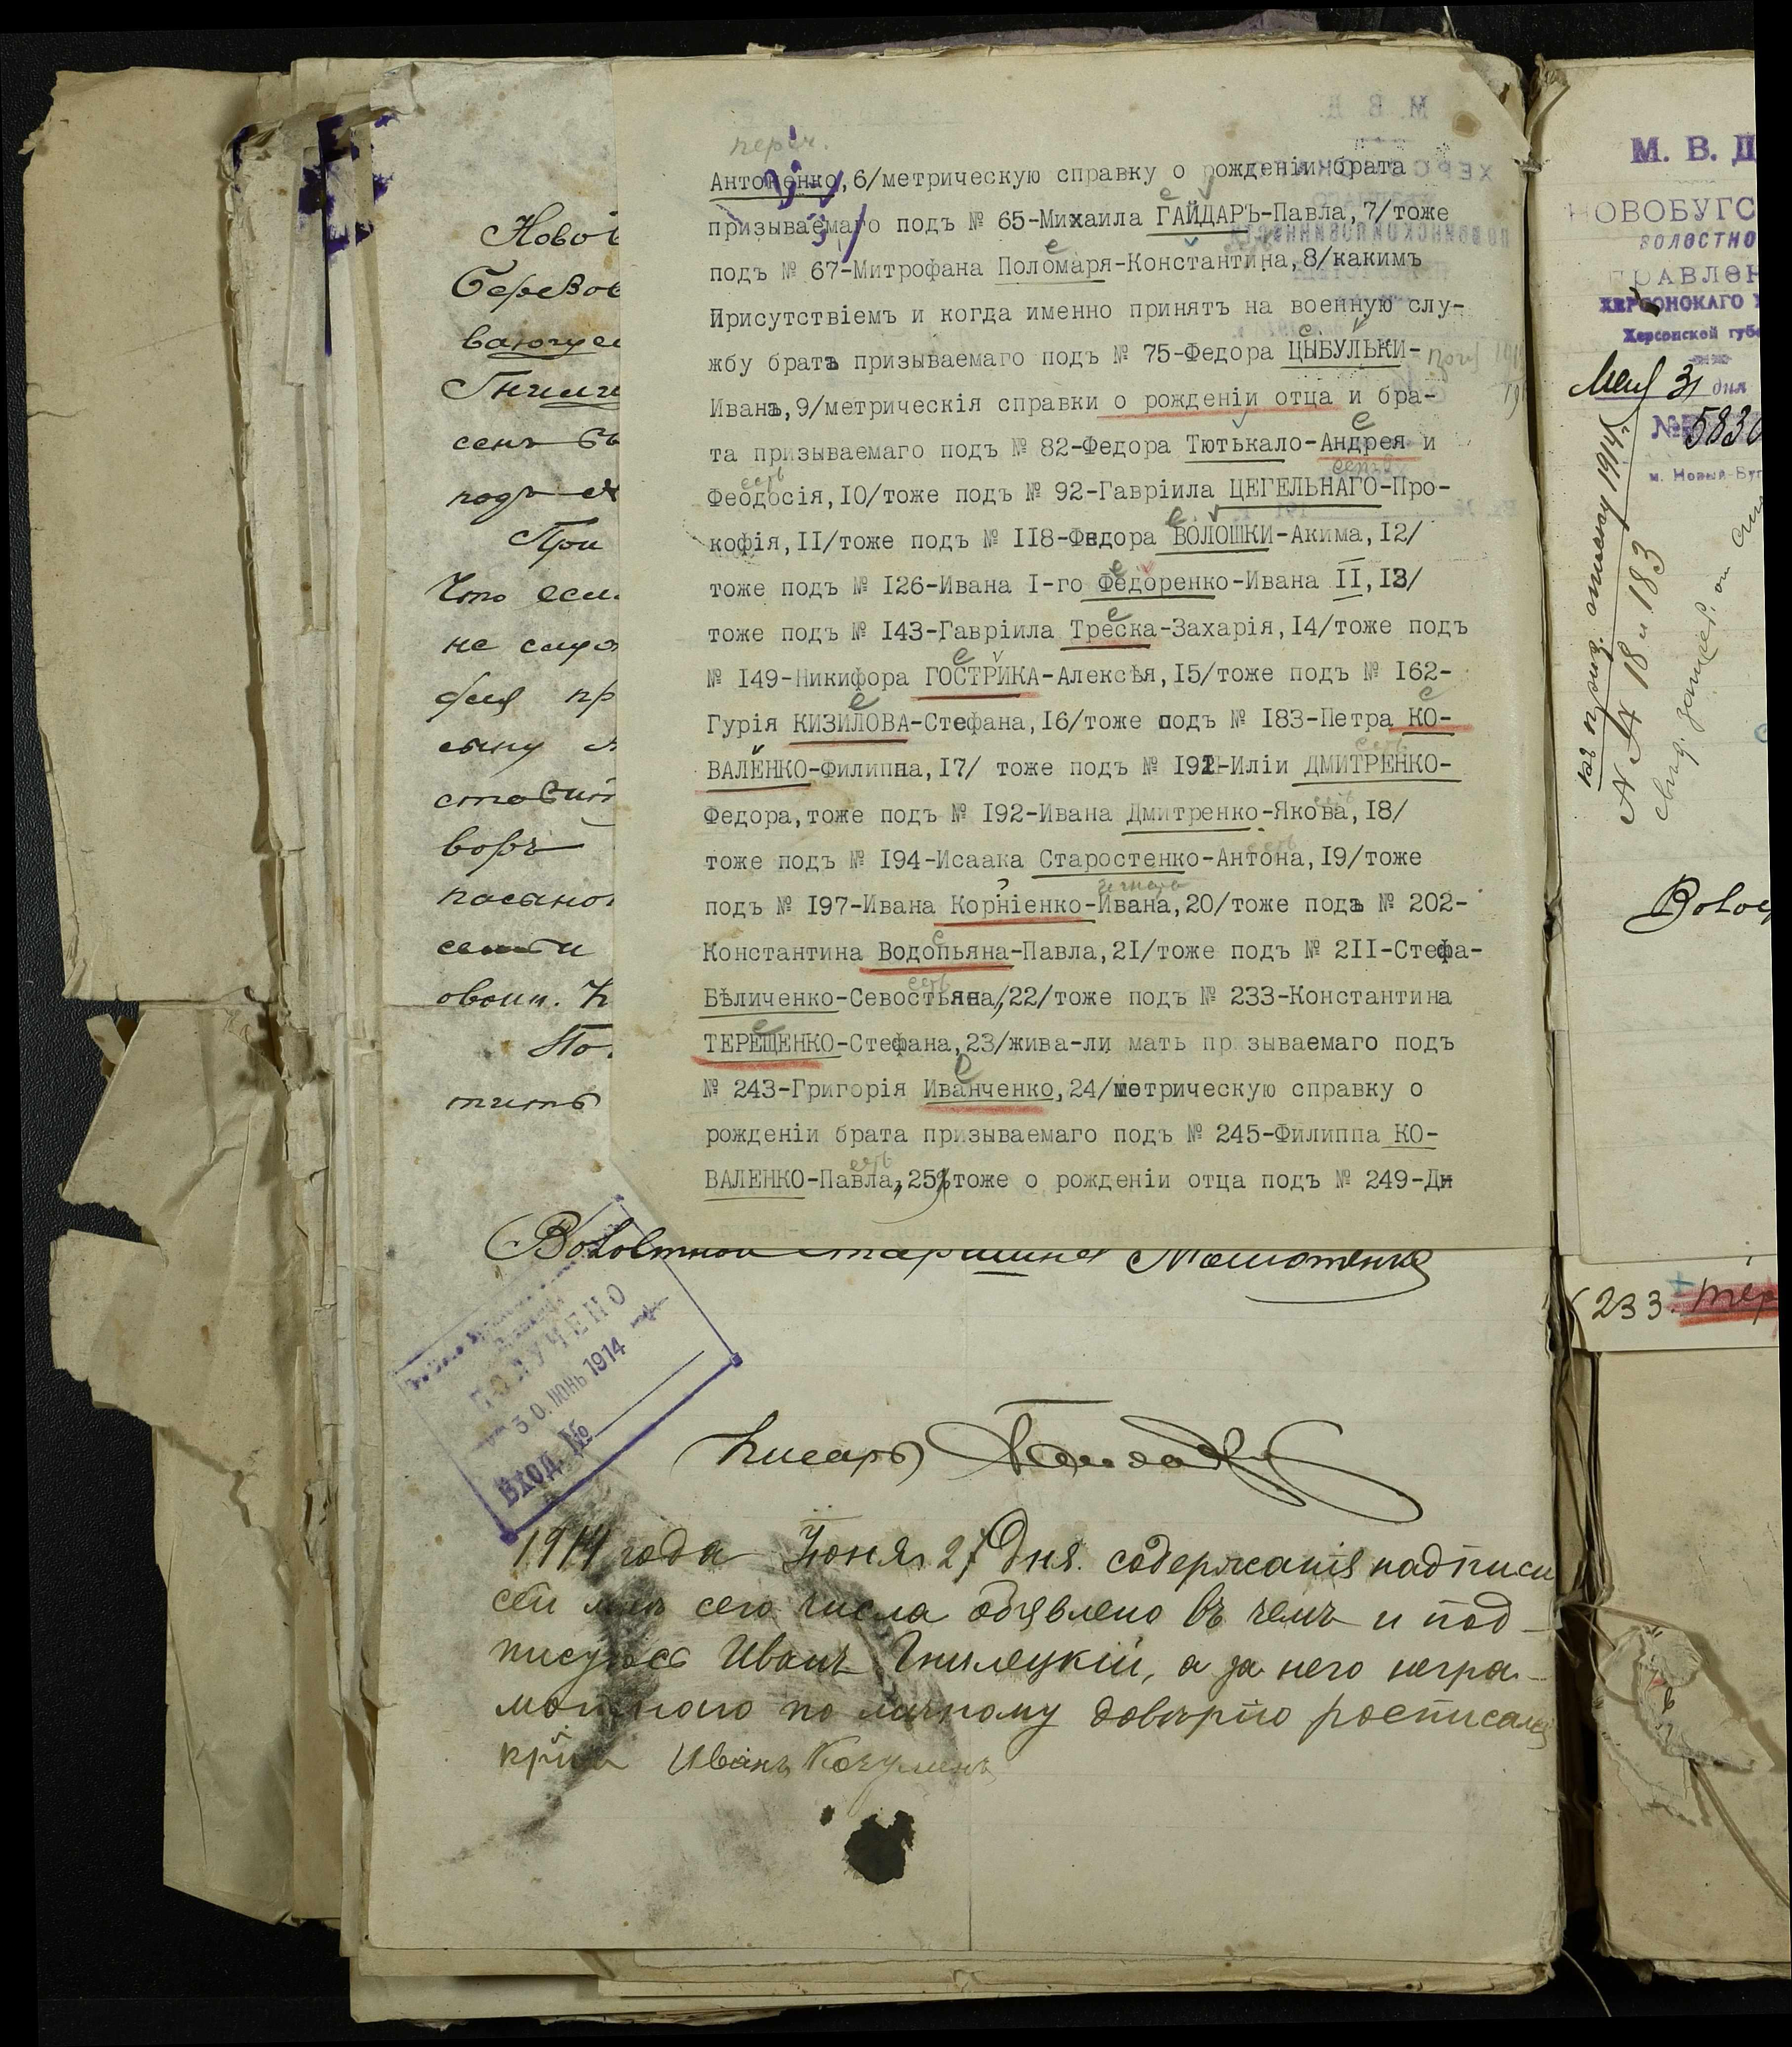 Антоненко,6/метрическую справку о рожденіи брата
призываемаго подъ № 65-Михаила ГАЙДАРЪ-Павла,7/тоже
подъ № 67-Митрофана Поломаря-Константина,8/какимъ
Присутствіемъ и когда именно принятъ на военную слу-
жбу братъ призываемаго подъ № 75-Федора ЦЫБУЛЬКИ-
Иванъ,9/метрическія справки о рожденіи отца и бра-
та призываемаго подъ № 82-Федора Тютькало-Андрея и
Феодосія,10/тоже подъ № 92-Гавріила ЦЕГЕЛЬНАГО-Про-
кофія,11/тоже подъ № 118-Федора ВОЛОШКИ-Акима,12/
тоже подъ № 126-Ивана I-го Федоренко-Ивана II,13/
тоже подъ № 143-Гавріила Треска-Захарія,14/тоже подъ
№ 149-Никифора ГОСТРИКА-Алексѣя,15/тоже подъ № 162-
Гурія КИЗИЛОВА-Стефана,16/тоже подъ № 183-Петра КО-
ВАЛЕНКО-Филиппа,17/ тоже подъ № 191-Иліи ДМИТРЕНКО-
Федора,тоже подъ № 192-Ивана Дмитренко-Якова,18/
тоже подъ № 194-Исаака Старостенко-Антона,19/тоже
подъ № 197-Ивана Корніенко-Ивана,20/тоже подъ № 202-
Константина Водопьяна-Павла,21/тоже подъ № 211-Стефа-
Бѣличенко-Севостьяна,22/тоже подъ № 233-Константина
ТЕРЕЩЕНКО-Стефана,23/жива-ли мать пр зываемаго подъ
№ 243-Григорія Иванченко,24/метрическую справку о
рожденіи брата призываемаго подъ № 245-Филиппа КО-
ВАЛЕНКО-Павла,25/тоже о рожденіи отца подъ № 249-Дн
сенъ
подъ
При
Что если
не
сыну
воръ
сего и
По
Волостной старшина
ПОЛУЧЕНО
30. ІЮНЬ 1914
Вход. №
Писарь
1914 года Іюня 27 Дня. содержанія надписи
сей мнѣ сего числа обявлено въ чемъ и под-
писуюсь Иванъ Гнилецкій, а за него негра-
мотного по личному довѣрію росписался
Иванъ
М. В. Д
НОВОБУГС
ВОЛОСТНО
ПРАВЛЕН
ХЕРСОНСКАГО У
Херсонской губе
Мая 31 дня
№ 5830
м. Новый-Буг
1914 г.
№№ 18 и 183
Волос
233. Тер